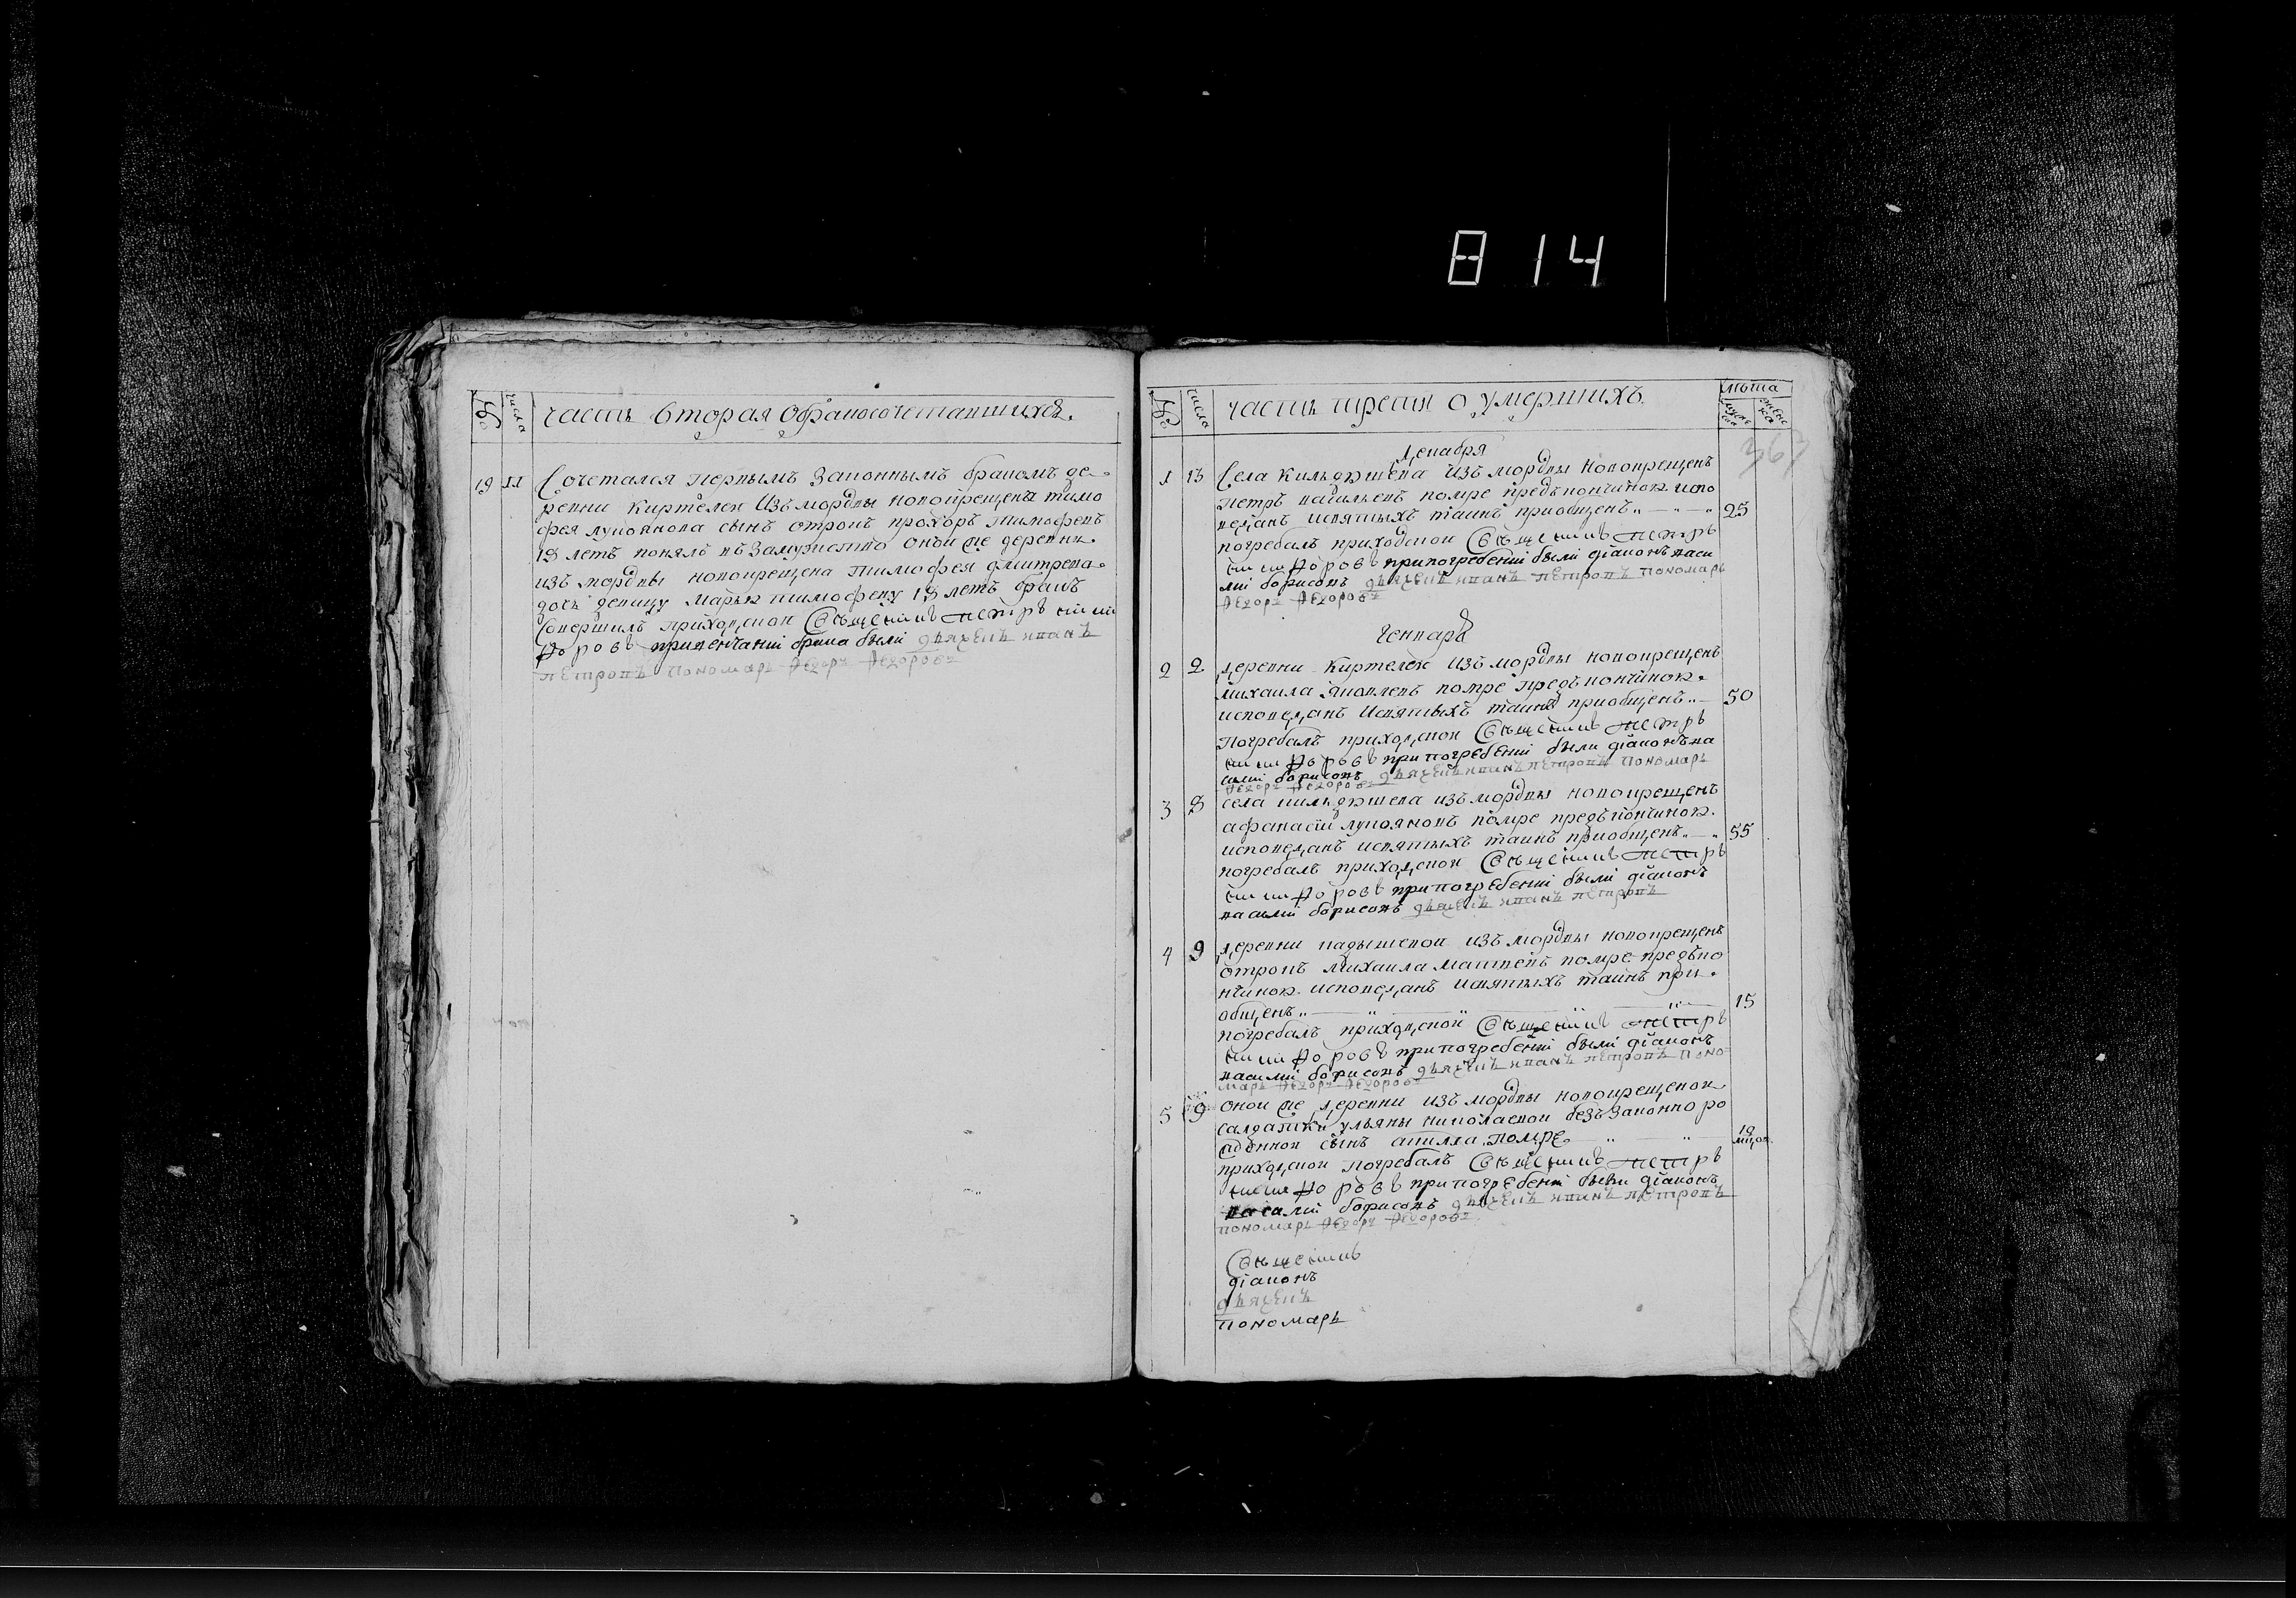 814
№ числа часть вторая обракосочетавшихся.
19 11 Сочетался первымъ законнымъ бракомъ де-
ревни киртелей изъ мордвы новокрещена тимо
фея лукоянова сынъ отрокъ прохоръ тимофеевъ
18 летъ понялъ въ замужество оной же деревни
изъ мордвы новокрещена тимофея дмитрева
дочь девицу марью тимофеву 18 летъ бракъ
совершилъ приходской священникъ петръ
припенчаніи брака были дьячекъ иванъ
петровъ пономарь федоръ федоровъ
№ числа часть третия о умершихъ лѣта
367
декабря
1 13 Села кильдюшева изъ мордвы новокрещенъ
петръ васильевъ помре предъ кончиною испо
веданъ исвятыхъ таинъ приобщенъ 25
погребалъ приходской священникъ петръ
припогребеніи были діаконъ васи
лій борисовъ дьячекъ иванъ петровъ пономарь
федоръ федоровъ
генваря
2 2 деревни киртелей изъ мордвы новокрещенъ
михаила яковлевъ помре предъ кончиною
исповеданъ исвятыхъ таинъ приобщенъ 50
погребалъ приходской священникъ петръ
припогребеніи были діаконъ ва
силій борисовъ дьячекъ иванъ петровъ пономарь
федоръ федоровъ
3 8 села кильдюшева изъ мордвы новокрещенъ
афанасій лукояновъ помре предъ кончиною
исповеданъ исвятыхъ таинъ приобщенъ 55
погребалъ приходской священникъ петръ
припогребеніи были діаконъ
василій борисовъ дьячекъ иванъ петровъ
4 9 деревни кадышевой изъ мордвы новокрещенъ
отрокъ михаила матвеевъ помре предъ ко
нчиною исповеданъ исвятыхъ таинъ при-
общенъ 15
погребалъ приходской священникъ петръ
припогребеніи были діаконъ
василій борисовъ дьячекъ иванъ петровъ поно
марь федоръ федоровъ
5 9 оной же деревни изъ мордвы новокрещеной
салдатки ульяны николаевой беззаконно ро
жденной сынъ помре
приходской погребалъ священникъ петръ
припогребеніи были діаконъ
василій борисовъ дьячекъ иванъ петровъ
пономарь федоръ федоровъ
священникъ
діаконъ
дьячекъ
пономарь